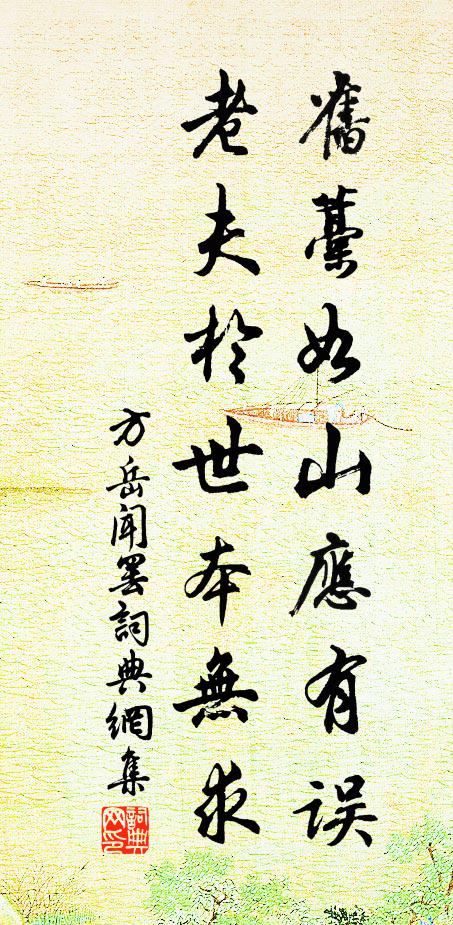 舊藁如山應有誤
老夫於世本無求
方岳聞罷詞典網集
詞典网印